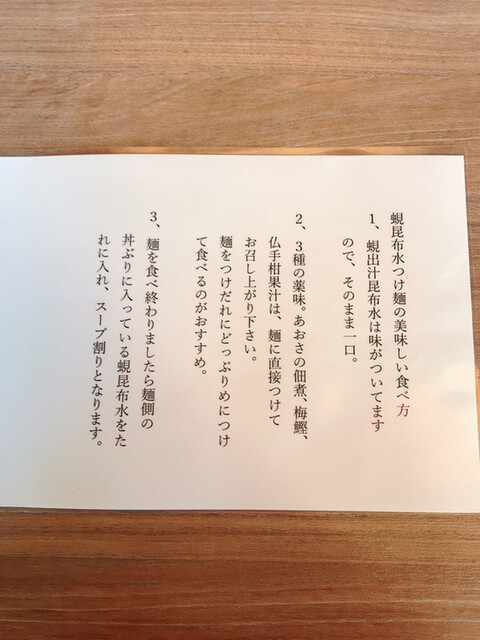 蜆昆布水つけ麺の美味しい食べ方
1、蜆出汁昆布水は味がついてます
ので、そのまま一口。
2、3種の薬味。あおさの佃煮、梅鰹、
仏手柑果汁は、麺に直接つけて
お召し上がり下さい。
麺をつけだれにどっぷりめにつけ
て食べるのがおすすめ。
3、麺を食べ終わりましたら麺側の
丼ぶりに入っている蜆昆布水をた
れに入れ、スープ割りとなります。